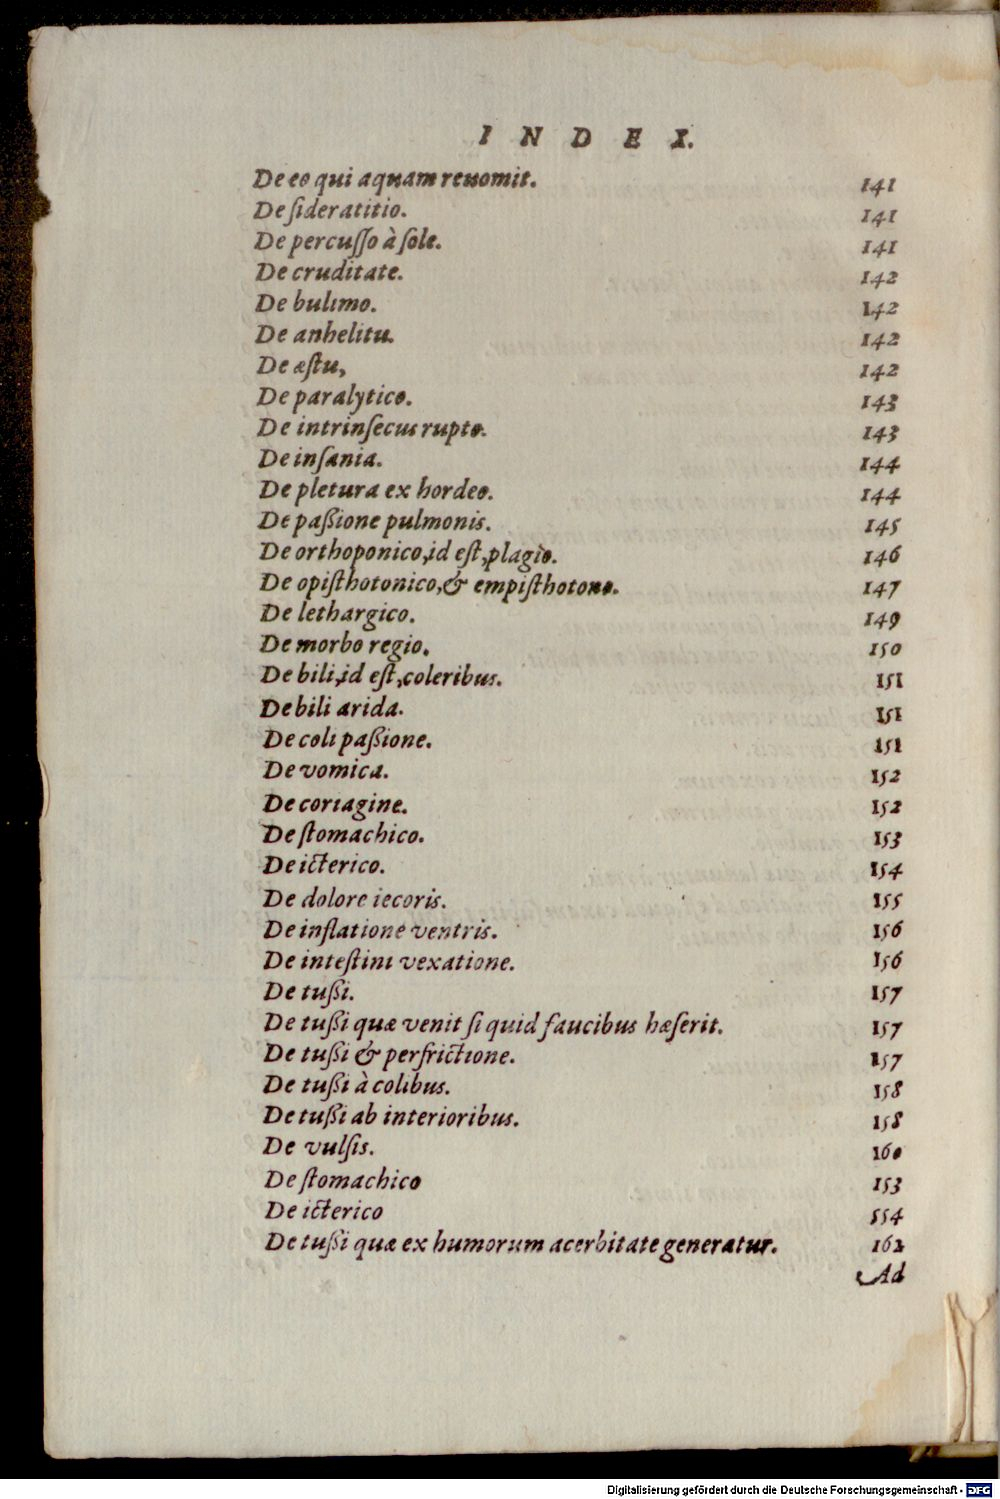 INDEX.
De eo qui aquam reuomit. 141
De ſideratitio. 141
De percuſſo à ſole. 141
De cruditate. 142
De bulimo. 142
De anhelitu. 142
De æſtu, 142
De paralytico. 143
De intrinſecus rupto. 143
De inſania. 144
De pletura ex hordeo. 144
De paßione pulmonis. 145
De orthoponico, id eſt, plagio. 146
De opiſthotonico, & empiſthotono. 147
De lethargico. 149
De morbo regio. 150
De bili, id eſt, coleribus. 151
De bili arida. 151
De coli paßione. 151
De vomica. 152
De coriagine. 152
De ſtomachico. 153
De icterico. 154
De dolore iecoris. 155
De inflatione ventris. 156
De inteſtini vexatione. 156
De tußi. 157
De tußi quæ venit ſi quid faucibus hæſerit. 157
De tußi & perfrictione. 157
De tußi à colibus. 158
De tußi ab interioribus. 158
De vulſis. 160
De ſtomachico 153
De icterico 554
De tußi quæ ex humorum acerbitate generatur. 162
Ad
Digitalisierung gefördert durch die Deutsche Forschungsgemeinschaft - DFG